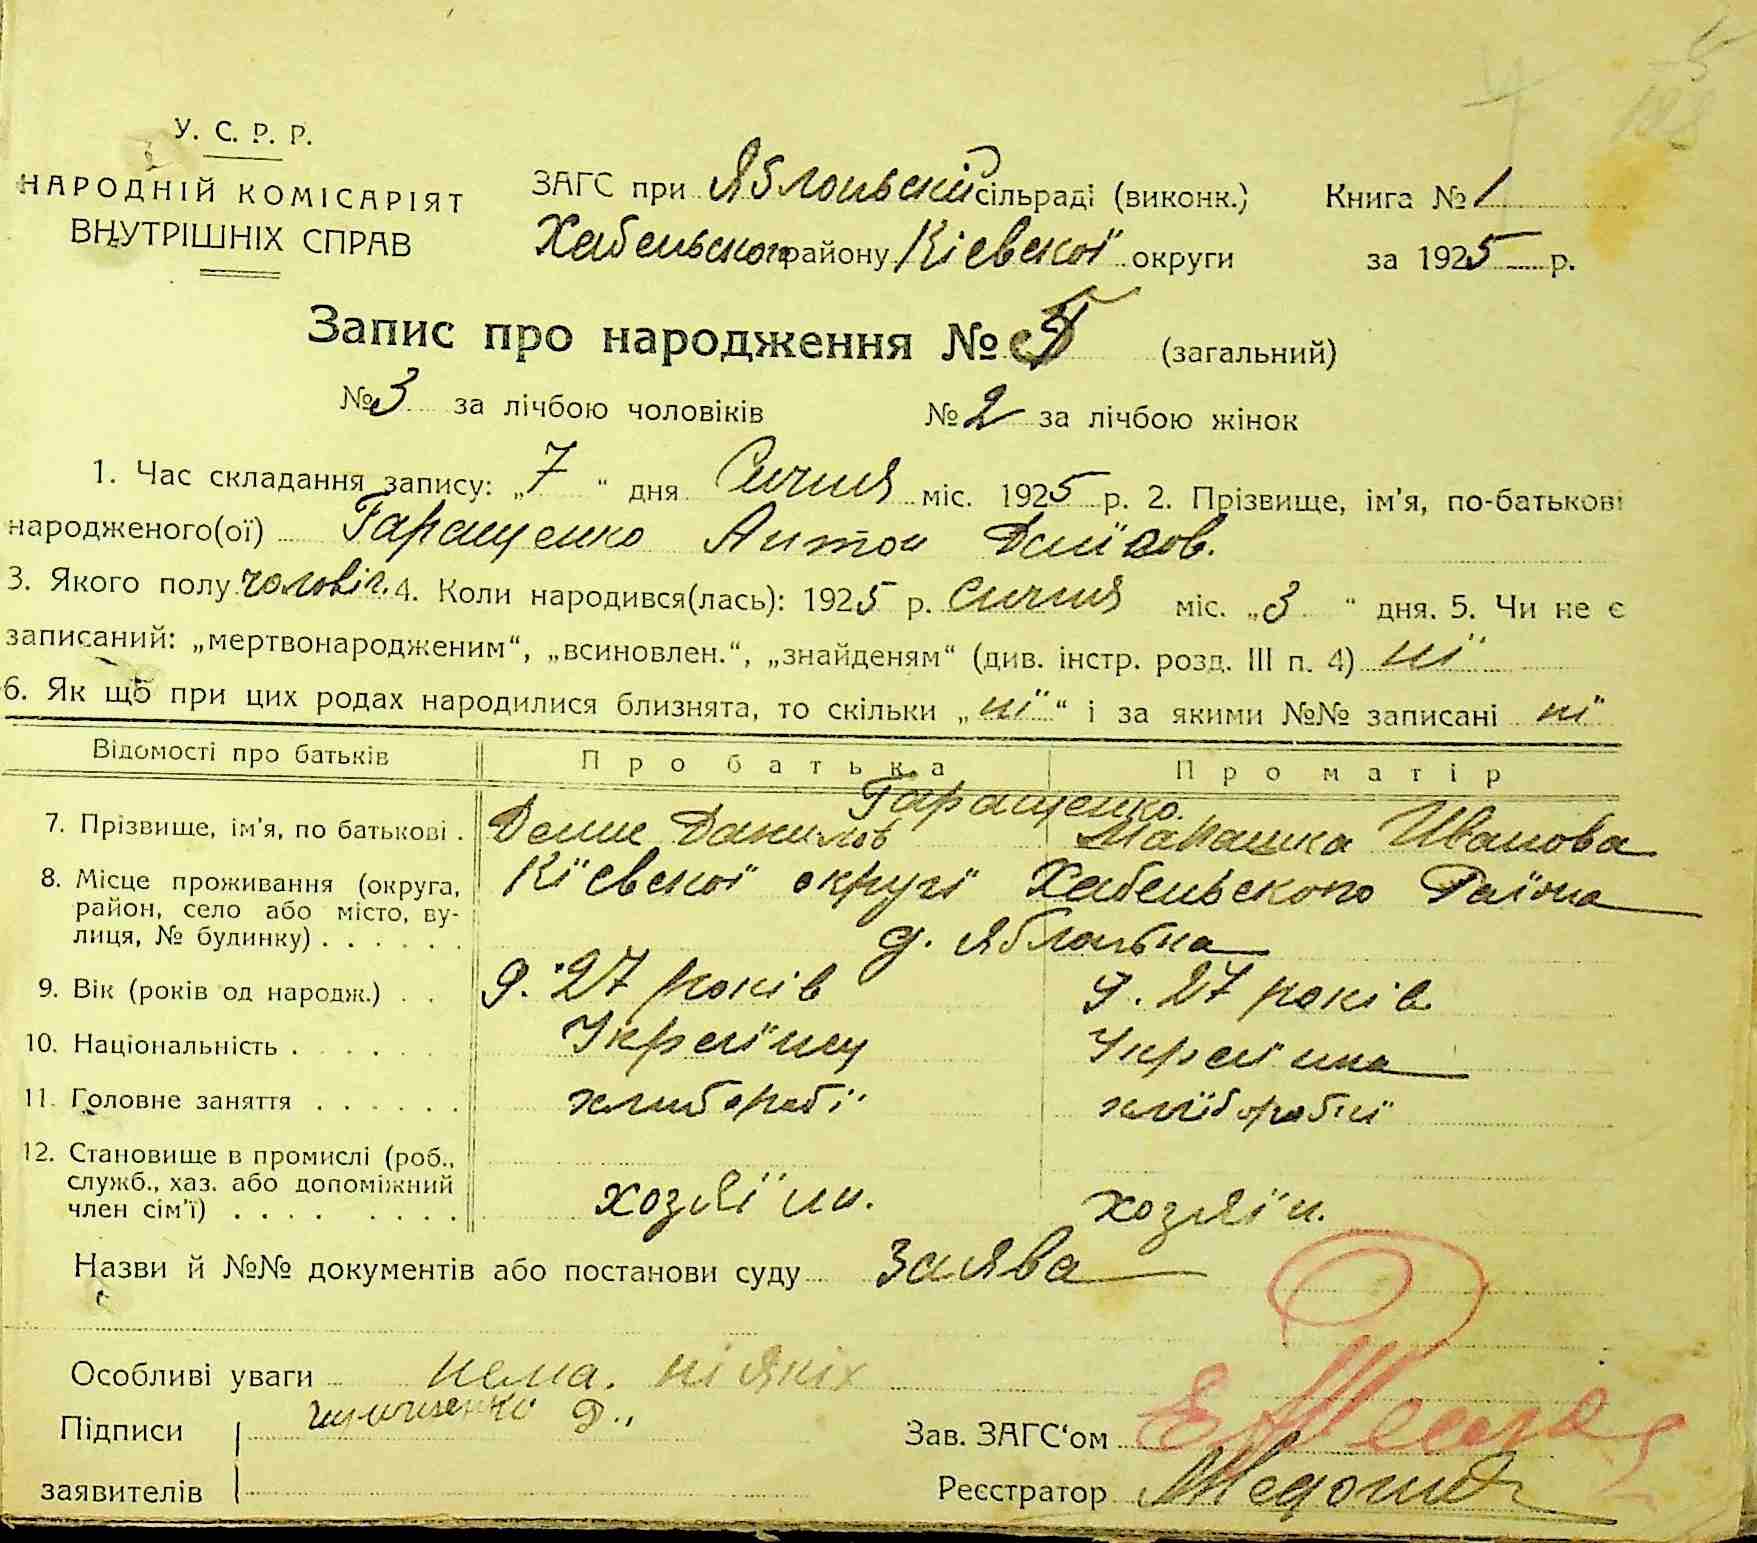 У. С. Р. Р.
НАРОДНІЙ КОМІСАРІЯТ
ВНУТРІШНІХ СПРАВ
ЗАГС при Яблоньскій сільраді (виконк.) Книга № 1
Хабеньского району Кіевскої округи за 1925 р.
Запис про народження № 5 (загальний)
№ 3 за лічбою чоловіків № 2 за лічбою жінок
1. Час складання запису: „7“ дня Сичня міс. 1925 р. 2. Прізвище, ім'я, по-батькові
народженого(ої) Гаращенко Антон
3. Якого полу чоловіч. 4. Коли народився(лась): 1925 р. Сичня міс. „3“ дня. 5. Чи не є
записаний: „мертвонародженим“, „всиновлен.“, „знайденям“ (див. інстр. розд. III п. 4) нї
6. Як що при цих родах народилися близнята, то скільки „нї“ і за якими №№ записані нї
Відомості про батьків Про батька Про матір
Гаращенко
7. Прізвище, ім'я, по батькові . Денис Данилов Иванова
8. Місце проживання (округа, Кїевскої округї Хабеньского Раїона
район, село або місто, ву-
лиця, № будинку) . . . . . . д. Яблонька
9. Вік (років од народж.) . . 27 років 27 років
10. Національність . . . . . . Українец Українка
11. Головне заняття . . . . . . хлиборобї хлїборобнї
12. Становище в промислі (роб.,
служб., хаз. або допоміжний
член сім'ї) . . . . . . . . хозяїин. хозяїн.
Назви й №№ документів або постанови суду Заява
Особливі уваги нема. нї якіх
Підписи Зав. ЗАГС'ом
заявителів Реєстратор